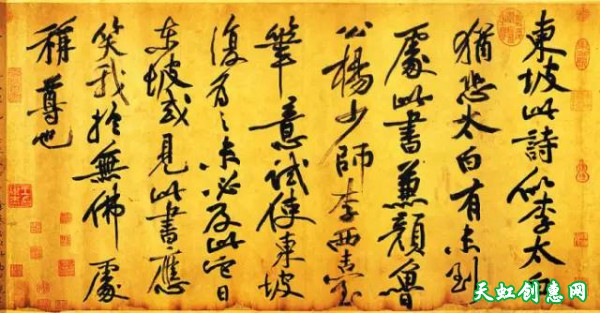 東坡此詩似李太白
猶恐太白有未到
處此書兼顏魯
公楊少師李西臺
筆意試使東坡
復為之未必及此它日
東坡或見此書應
笑我於無佛處
稱尊也
天虹创惠网